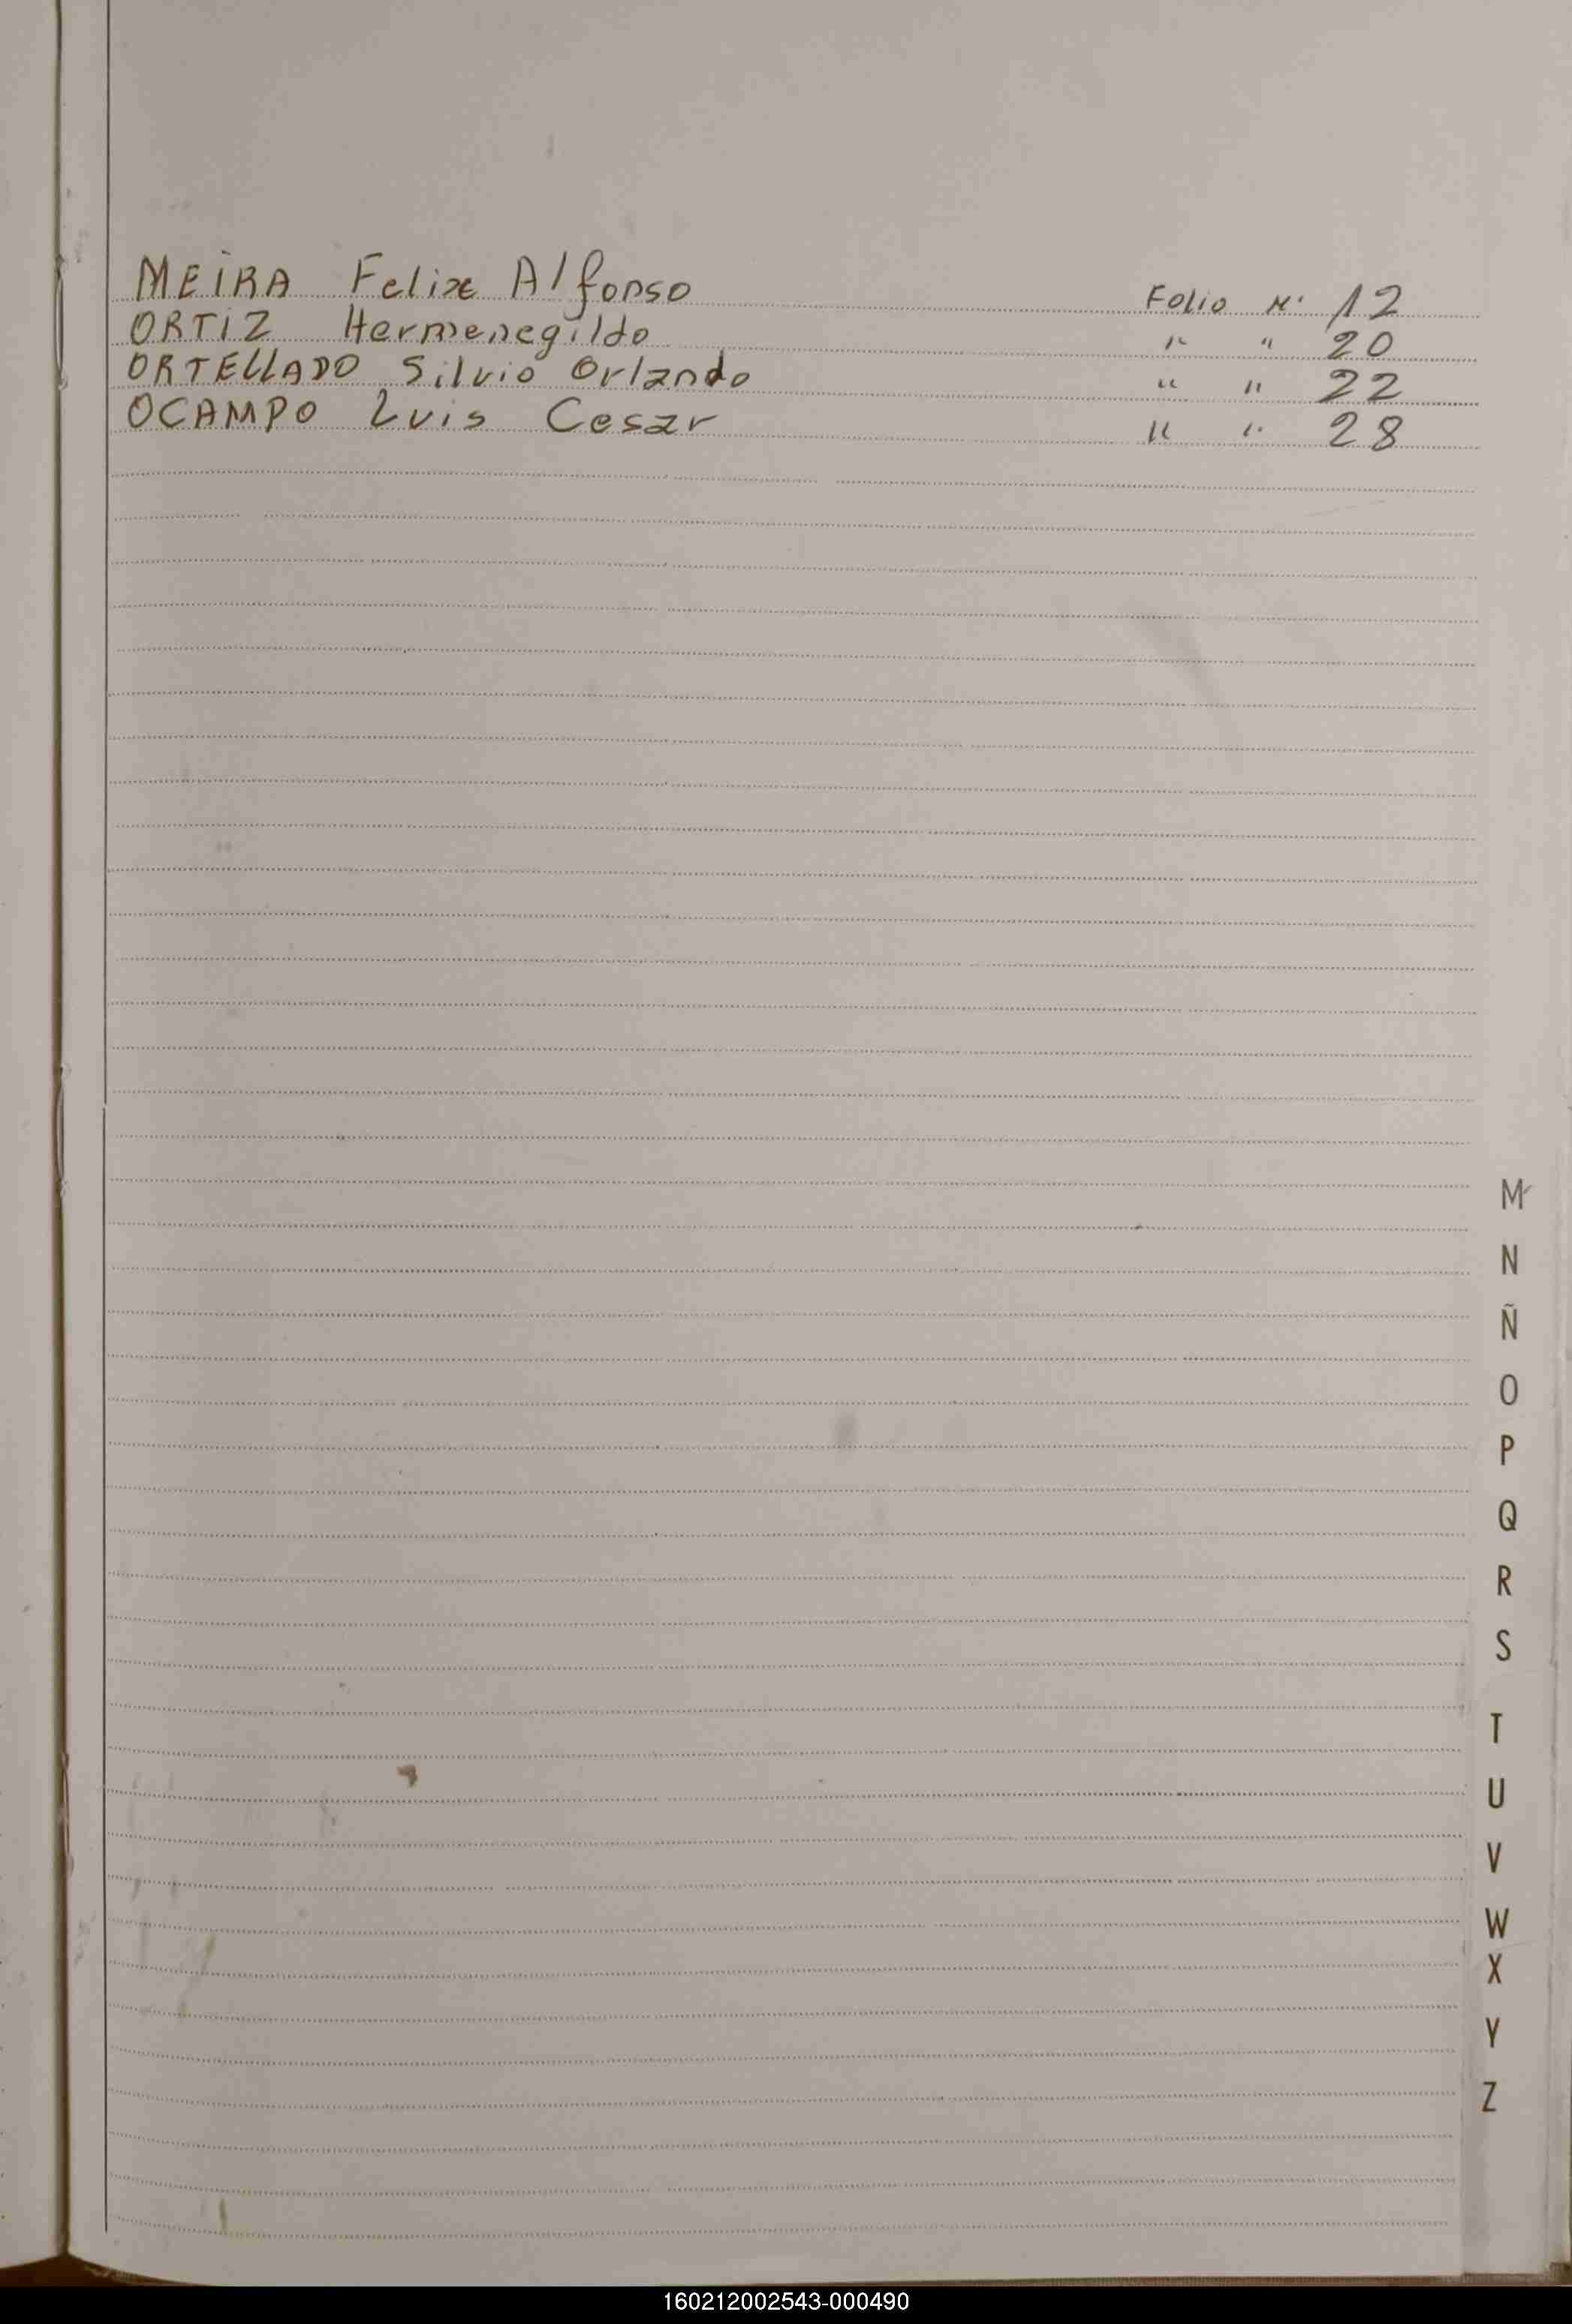 MEIRA Felix Alfonso Folio N. 12
ORTIZ Hermenegildo " " 20
ORTELLADO Silvio Orlando " " 22
OCAMPO Luis Cesar " " 28
M
N
Ñ
O
P
Q
R
S
T
U
V
W
X
Y
Z
160212002543-000490